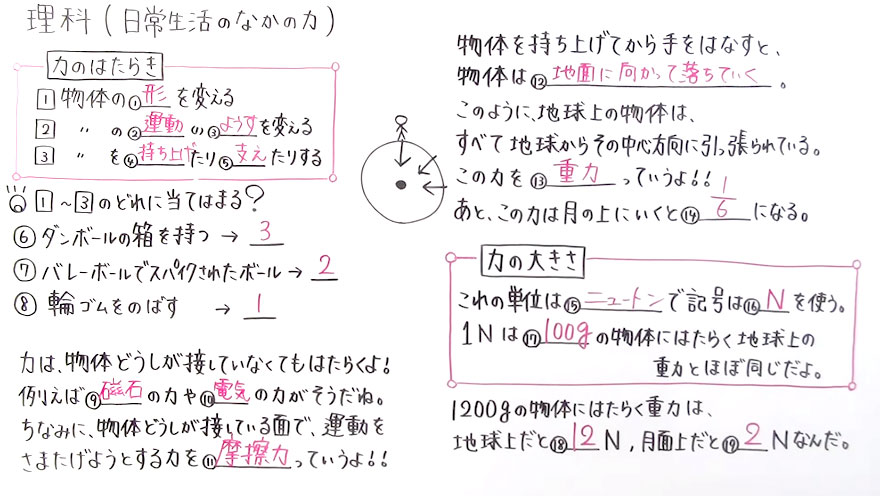 理科(日常生活のなかの力)
力のはたらき
1 物体の①形を変える
2 〃 の②運動の③ようすを変える
3 〃 を④持ち上げたり⑤支えたりする
1～3のどれに当てはまる?
⑥ダンボールの箱を持つ → 3
⑦バレーボールでスパイクされたボール → 2
⑧輪ゴムをのばす → 1
力は、物体どうしが接していなくてもはたらくよ!
例えば⑨磁石の力や⑩電気の力がそうだね。
ちなみに、物体どうしが接している面で、運動を
さまたげようとする力を⑪摩擦力っていうよ!!
物体を持ち上げてから手をはなすと、
物体は⑫地面に向かって落ちていく。
このように、地球上の物体は、
すべて地球からその中心方向に引っ張られている。
この力を⑬重力っていうよ!!
あと、この力は月の上にいくと⑭1/6になる。
力の大きさ
これの単位は⑮ニュートンで記号は⑯Nを使う。
1Nは⑰100gの物体にはたらく地球上の
重力とほぼ同じだよ。
1200gの物体にはたらく重力は、
地球上だと⑱12N,月面上だと⑲2Nなんだ。